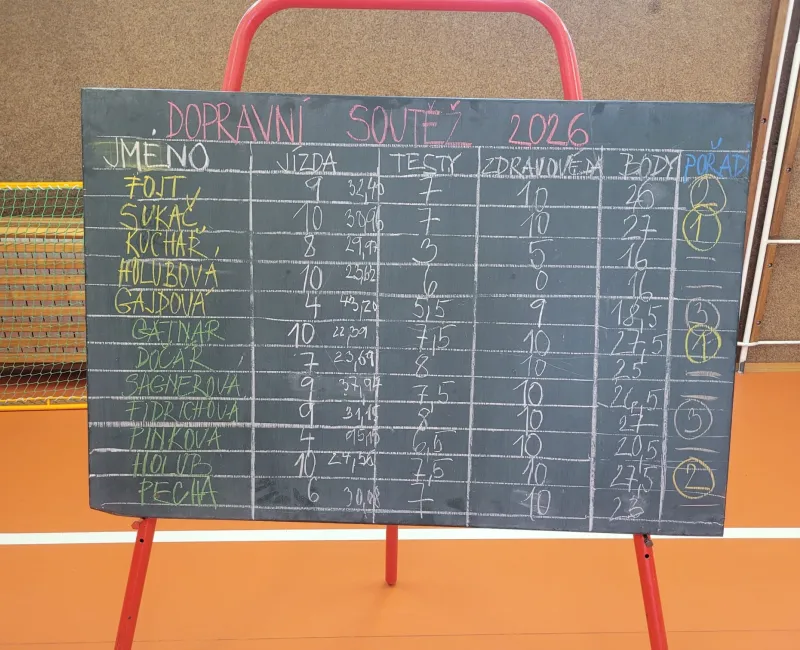 DOPRAVNÍ SOUTĚŽ 2026
JMÉNO JÍZDA TESTY ZDRAVOVĚDA BODY POŘADÍ
FOJT 9 32,40 7 10 26 2
SUKAČ 10 30,96 7 10 27 1
KUCHAŘ 8 29,97 3 5 16 —
HOLUBOVÁ 10 23,62 6 0 16 —
GAJDOVÁ 4 43,20 5,5 9 18,5 3
GAJNAR 10 22,39 7,5 10 27,5 1
DOČÁR 7 23,69 8 10 25 —
SAGNEROVÁ 9 37,97 7,5 10 26,5 —
FIDRICHOVÁ 9 31,15 8 10 27 3
PINKOVÁ 4 6,5 10 20,5 —
HOLUB 10 24,38 7,5 10 27,5 2
PECHA 6 7 10 23 —